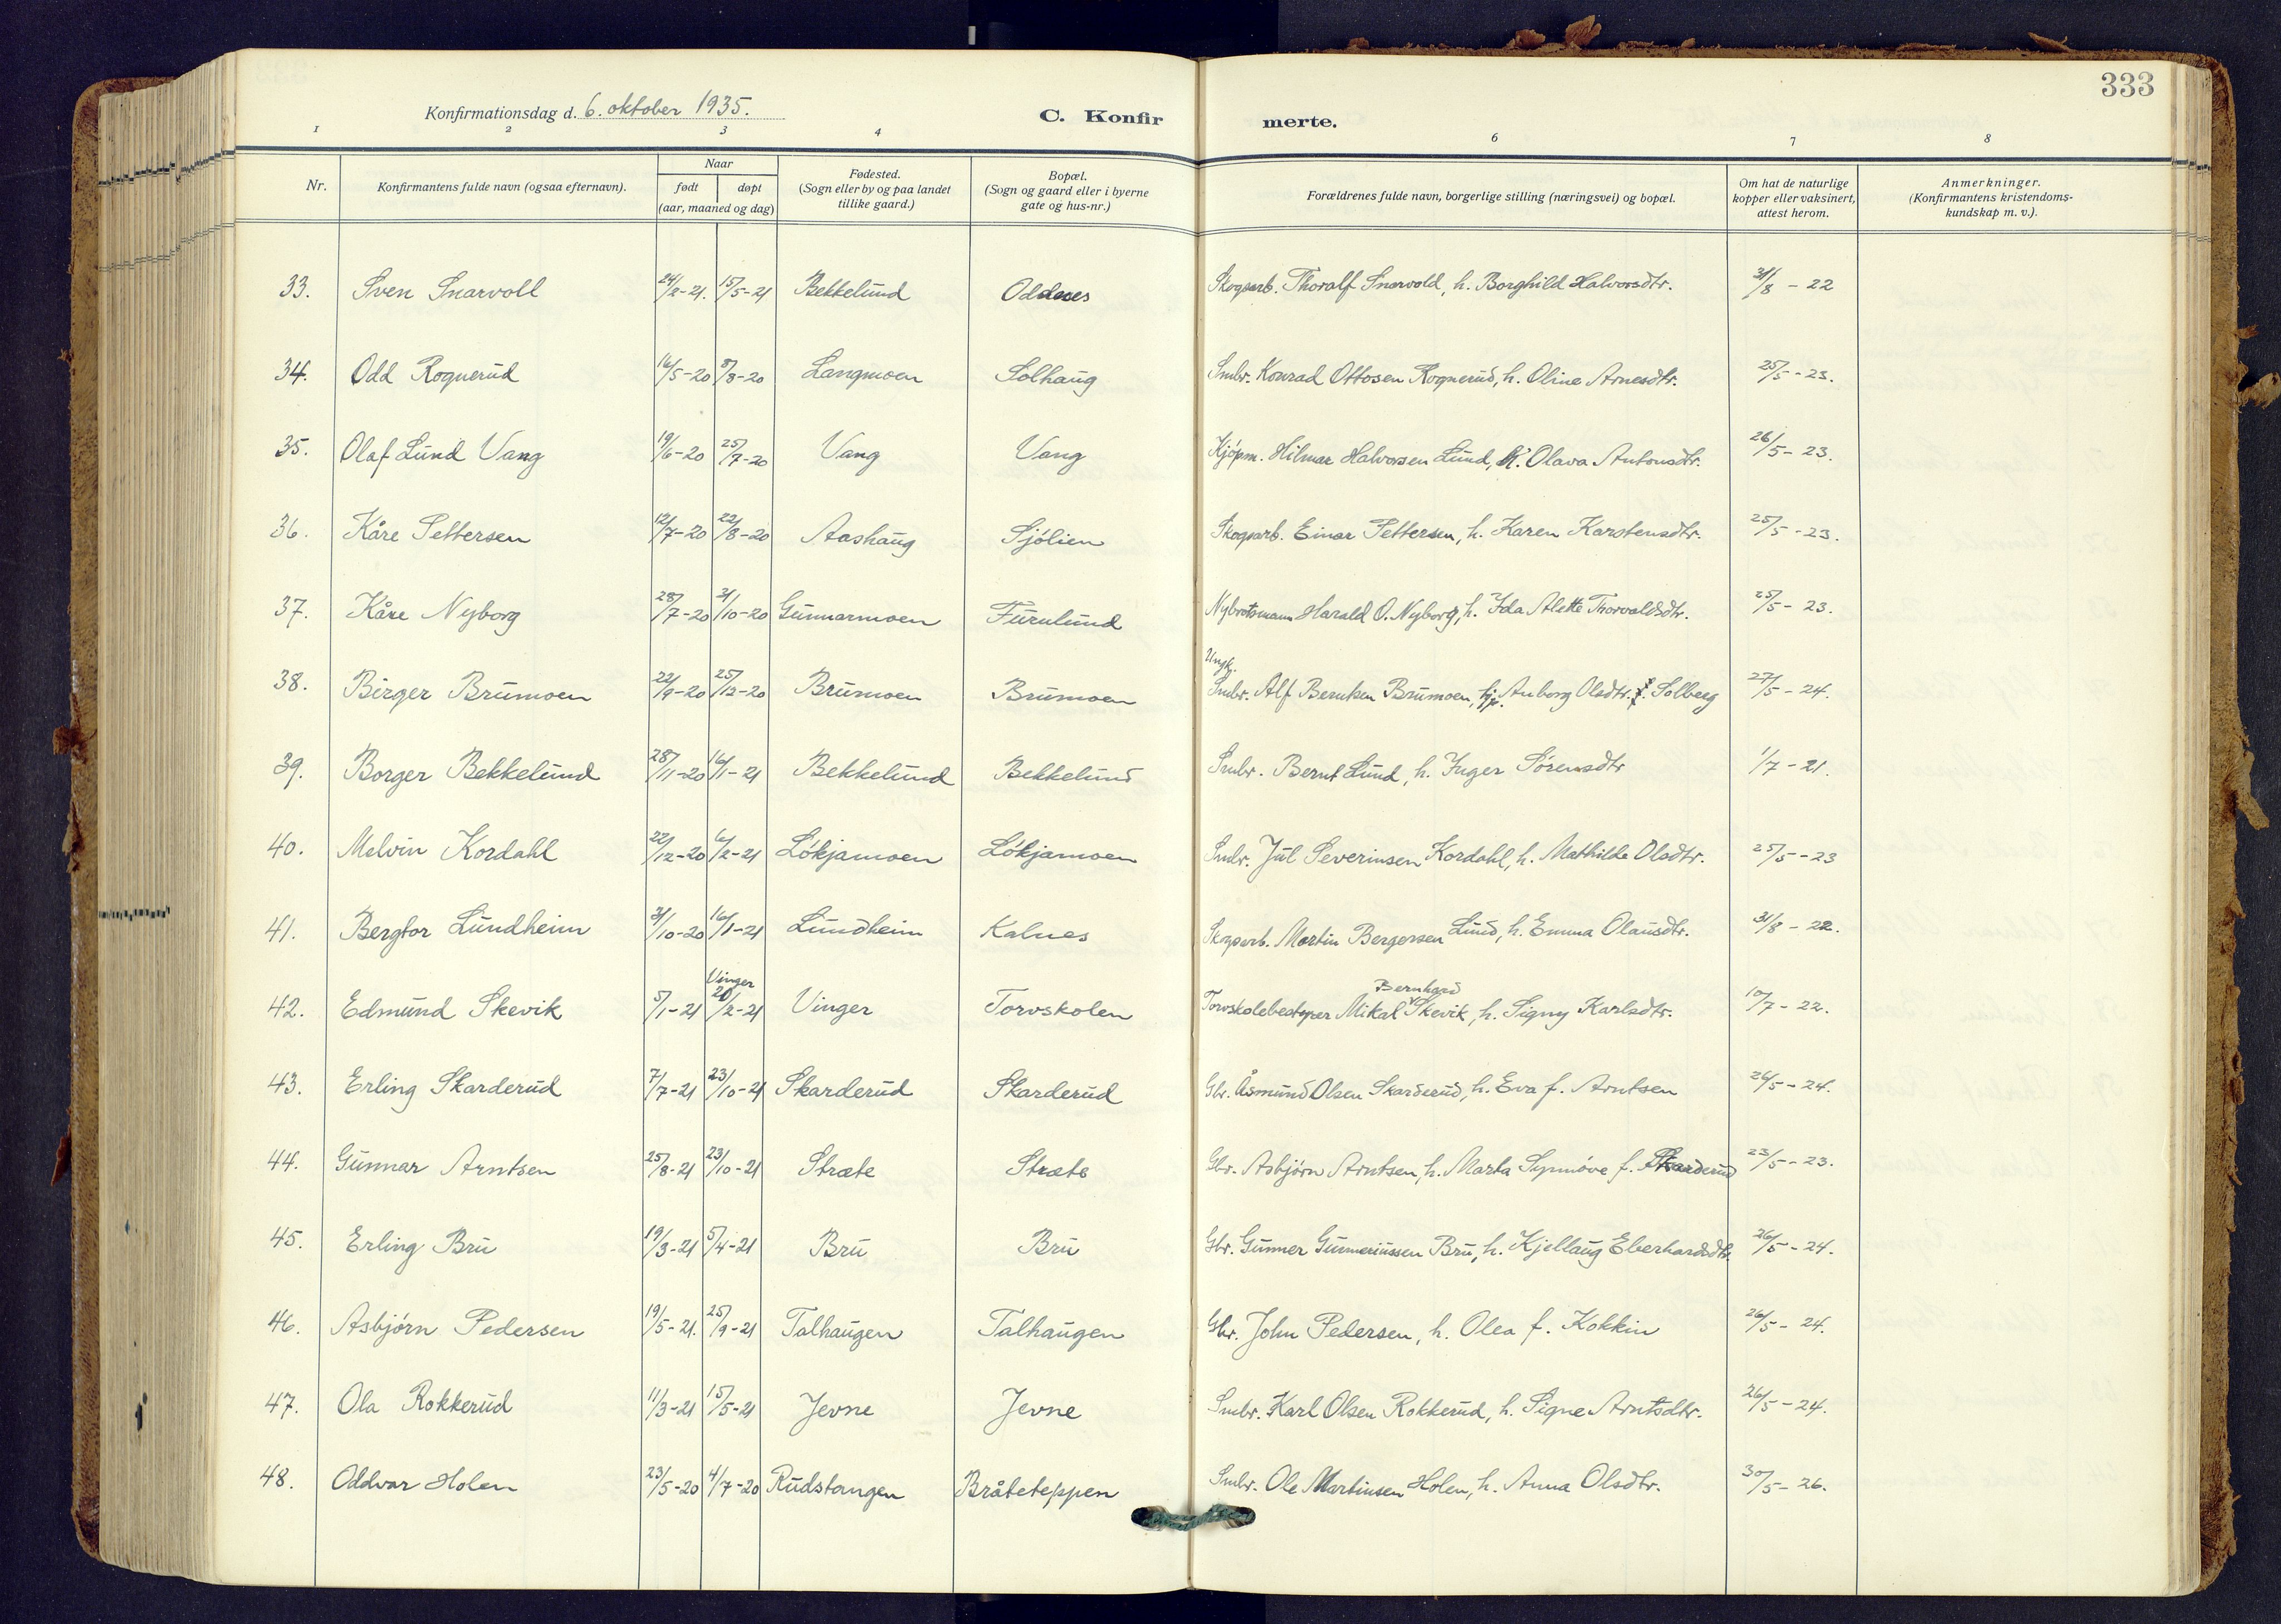 333
Konfirmationsdag d. 6. oktober 1935.
C. Konfir merte.
1 2 3 4 6 7 8
Nr. Konfirmantens fulde navn (ogsaa efternavn). Naar født døpt (aar, maaned og dag) Fødested. (Sogn eller by og paa landet tillike gaard.) Bopæl. (Sogn og gaard eller i byerne gate og hus-nr.) Forældrenes fulde navn, borgerlige stilling (næringsvei) og bopæl. Om hat de naturlige kopper eller vaksinert, attest herom. Anmerkninger. (Konfirmantens kristendoms-kundskap m. v.).
33. Sven Snarvoll 24/2-21. 15/5-21 Bekkelund Oddnes Skogsarb. Thoralf Snarvold, h. Borghild Halvorsdtr. 31/8 - 22
34. Odd Rognerud 16/5-20 8/8-20 Langmoen Solhaug Smbr. Konrad Ottosen Rognerud, h. Oline Arnesdtr. 25/5 - 23.
35. Olaf Lund Vang 19/6-20 25/7-20 Vang Vang Kjópm. Hilmar Halvorsen Lund, h. Olava Antonsdtr. 26/5 - 23.
36. Kåre Pettersen 12/7-20 22/8-20 Aashaug Sjólien Skogsarb. Einar Pettersen, h. Karen Karstensdtr. 25/5 - 23.
37. Kåre Nyborg 28/7-20 31/10-20 Gunnarmoen Furulund Nybrotsmann Harald O. Nyborg, h. Ida Alette Thorvaldsdtr. 25/5 - 23.
Ungk.
38. Birger Brumoen 22/9-20 25/12-20 Brumoen Brumoen Smbr. Alf Berntsen Brumoen, Anborg Olsdtr. Solberg 27/5 - 24.
39. Borger Bekkelund 28/11-20 16/1-21 Bekkelund Bekkelund Smbr. Bernt Lund, h. Inger Sórensdtr 1/7 - 21.
40. Melvin Kordahl 22/12-20 6/2-21 Lókjamoen Lókjamoen Smbr. Jul Severinsen Kordahl, h. Mathilde Olsdtr. 25/5 - 23
41. Bergtor Lundheim 31/10-20 16/1-21 Lundheim Kalnes Skogsarb. Martin Bergersen Lund, h. Emma Olausdtr. 31/8 - 22.
Vinger Bernhard
42. Edmund Skevik 5/1-21 20/2-21 Vinger Torvskolen Torvskolebestyrer Mikal Skevik, h. Signy Karlsdtr. 10/7 - 22.
43. Erling Skarderud 7/7-21 23/10-21 Skarderud Skarderud Gbr. Åsmund Olsen Skarderud, h. Eva f. Arntsen 26/5 - 24.
44. Gunnar Arntsen 25/8-21 23/10-21 Stræte Stræte Gbr. Asbjørn Arntsen, h. Marta Synnóve f. Skarderud 23/5 - 23.
45. Erling Bru 19/3-21 5/4-21 Bru Bru Gbr. Gunner Gunneriussen Bru, h. Kjellaug Eberhardsdtr. 26/5 - 24.
46. Asbjørn Pedersen 19/5-21. 25/9-21 Talhaugen Talhaugen Gbr. John Pedersen, h. Olea f. Kokkin 26/5 - 24.
47. Ola Rokkerud 11/3-21 15/5-21 Jevne Jevne Smbr. Karl Olsen Rokkerud, h. Signe Arntsdtr. 26/5 - 24.
48. Oddvar Holen 23/5-20 4/7-20 Rudstangen Bråteteppen Smbr. Ole Martinsen Holen, h. Anna Olsdtr. 30/5 - 26.